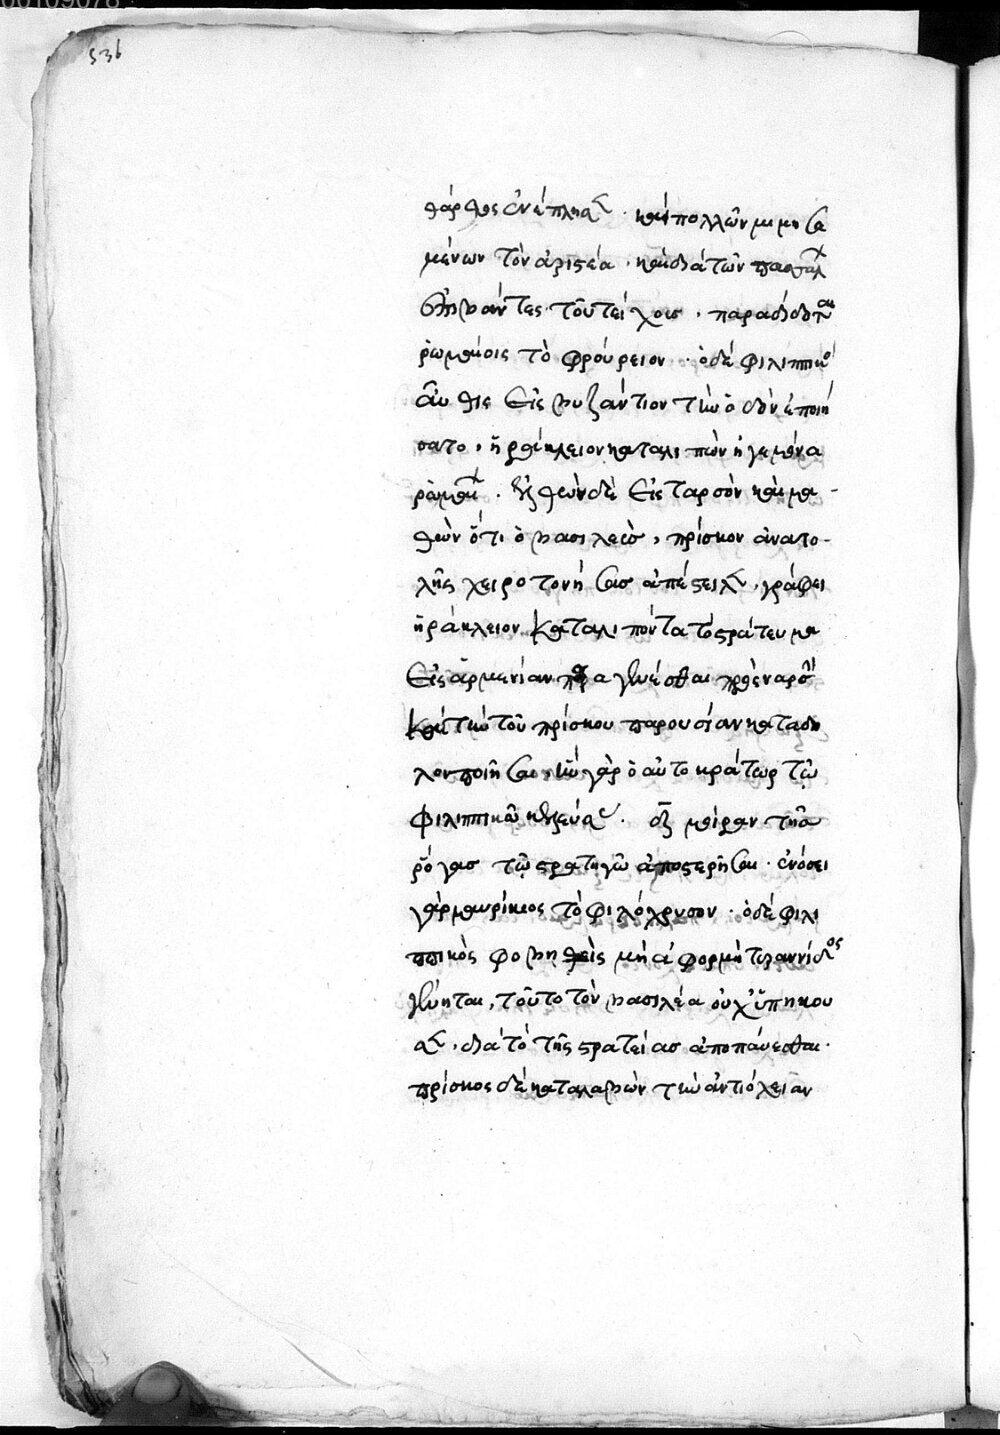 536
θάρσος ἐνέπλησεν. καὶ πολλῶν μιμησα
μένων τὸν ἀριστέα. καὶ διὰ τῶν πασσάλων
ἐπιβάντες τοῦ τείχους, παραδιδοῦσι
ῥωμαίοις τὸ φρούρειον. ὁ δὲ φιλιππικὸς
αὖθις εἰς βυζάντιον τὴν ὁδὸν ἐποιή
σατο, ἡράκλειον καταλιπὼν ἡγεμόνα
ῥωμαίων. ἐλθὼν δὲ εἰς ταρσὸν καὶ μα-
θὼν ὅτι ὁ βασιλεὺς, πρίσκον ἀνατο-
λῆς χειροτονήσας ἀπέστειλεν, γράφει
ἡράκλειον καταλιπόντα τὸ στράτευμα
εἰς ἀρμενίαν παραγενέσθαι πρὸς ναρσῆν
καὶ τὴν τοῦ πρίσκου παρουσίαν κατάδη
λον ποιῆσαι. ἦν γὰρ ὁ αὐτοκράτωρ τῷ
φιλιππικῷ κελεύσας.
ῥόγας τῷ στρατηγῷ ἀποστερῆσαι. ἐνόσει
γὰρ μαυρίκιος τὸ φιλόχρυσον. ὁ δὲ φιλι
ππικὸς φοβηθεὶς μὴ ἀφορμὴ τυραννίδος
γένηται, τοῦτο τὸν βασιλέα οὐχ ὑπήκου
σεν, διὰ τὸ τῆς στρατείας ἀποπαύεσθαι.
πρίσκος δὲ καταλαβὼν τὴν ἀντιόχειαν